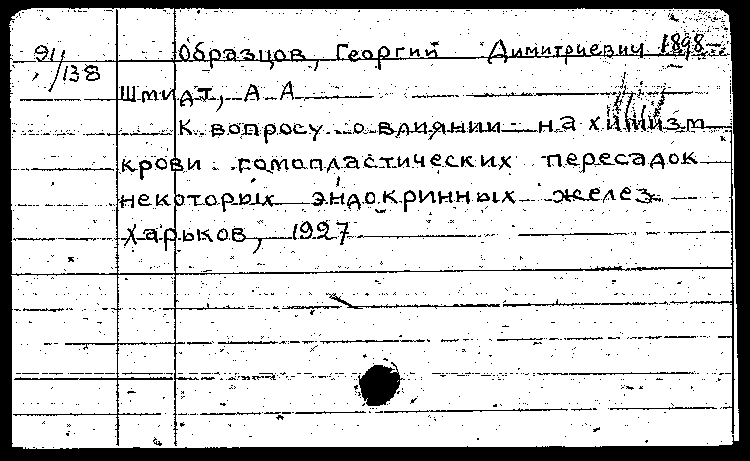 91/138 Образцов, Георгий Димитриевич 1898-
Шмидт, А А
К вопросу о влиянии на химизм
крови гомопластических пересадок
некоторых эндокринных желез
Харьков, 1927